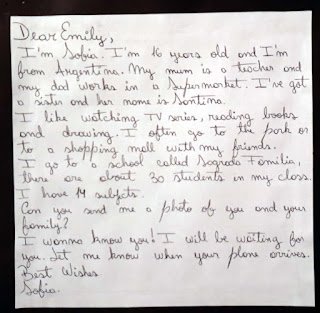 Dear Emily,
I'm Sofia. I'm 16 years old and I'm
from Argentina. My mum is a teacher and
my dad works in a supermarket. I've got
a sister and her name is Santina.
I like watching TV series, reading books
and drawing. I often go to the park or
to a shopping mall with my friends.
I go to a school called Sagrada Familia,
there are about 30 students in my class.
I have 14 subjets.
Can you send me a photo of you and your
family?
I wanna know you! I will be waiting for
you. Let me know when your plane arrives.
Best Wishes
Sofia.